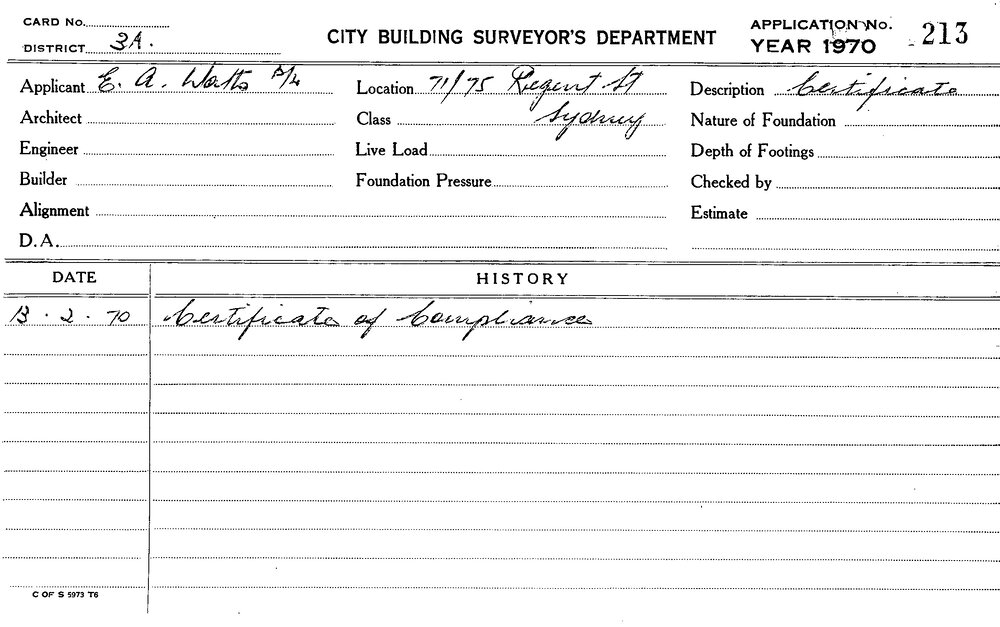 CARD No.
DISTRICT 3A.
CITY BUILDING SURVEYOR'S DEPARTMENT
APPLICATION No. 213
YEAR 1970
Applicant E. A. Watts P/L
Location 71/75 Regent St
Description Certificate
Architect
Class Sydney
Nature of Foundation
Engineer
Live Load
Depth of Footings
Builder
Foundation Pressure
Checked by
Alignment
Estimate
D.A.
DATE HISTORY
13 . 2 . 70 Certificate of Compliance
C OF S 5973 T6